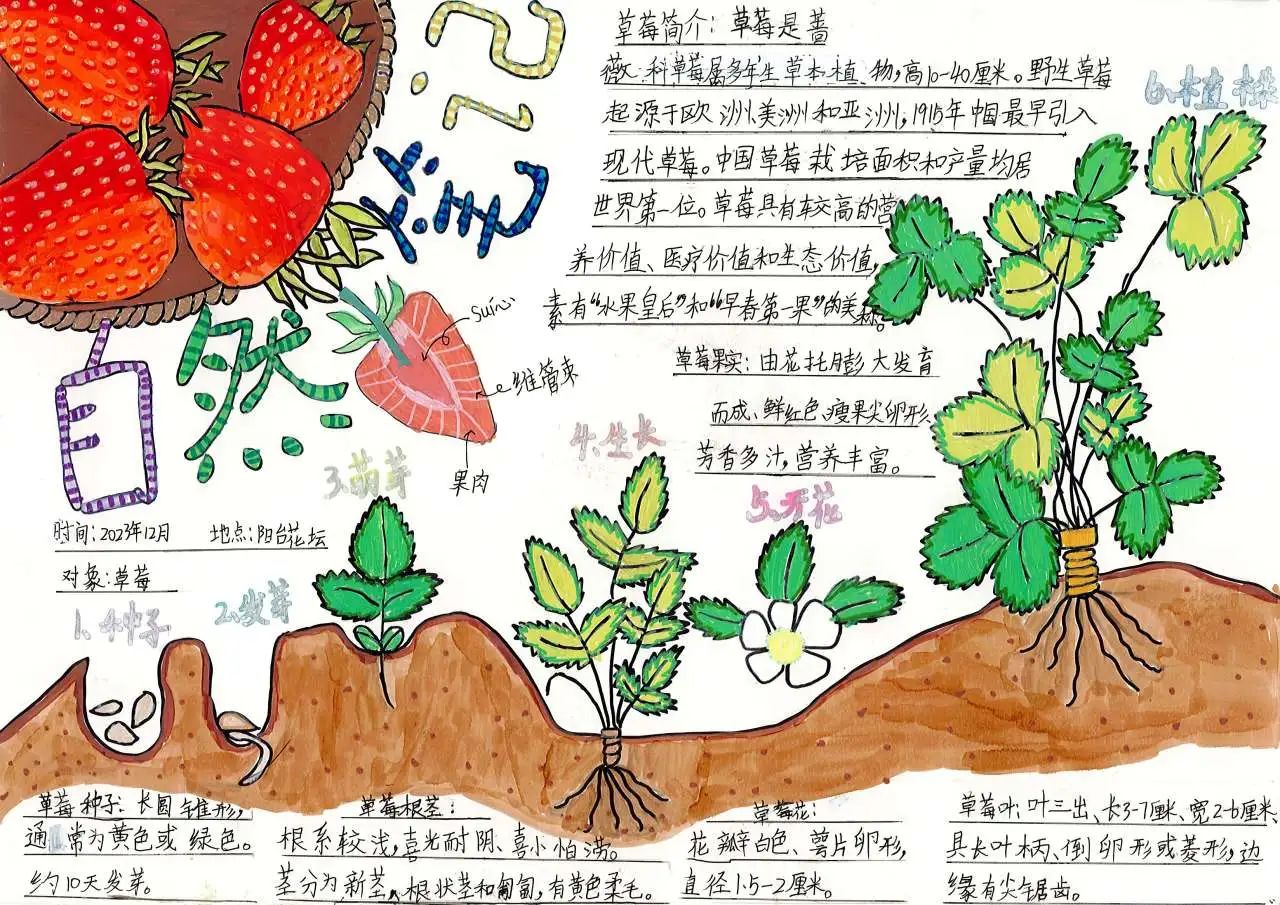 自然笔记
草莓简介：草莓是蔷
薇科草莓属多年生草本植、物，高10-40厘米。野生草莓
起源于欧洲、美洲和亚洲，1915年中国最早引入
现代草莓。中国草莓栽培面积和产量均居
世界第一位。草莓具有较高的营
养价值、医疗价值和生态价值，
素有“水果皇后”和“早春第一果”的美称。
草莓果实：由花托膨大发育
而成、鲜红色、瘦果尖卵形，
芳香多汁，营养丰富。
suíní
维管束
果肉
时间：2023年12月 地点：阳台花坛
对象：草莓
1、种子
2、发芽
3、萌芽
4、生长
5、开花
6、植株
草莓种子：长圆锥形，
通常为黄色或绿色。
约10天发芽。
草莓根茎：
根系较浅，喜光耐阴、喜小怕涝。
茎分为新茎、根状茎和匍匐，有黄色柔毛。
草莓花：
花瓣白色、萼片卵形，
直径1.5-2厘米。
草莓叶：叶三出、长3-7厘米、宽2-6厘米、
具长叶柄、倒卵形或菱形，边
缘有尖锯齿。